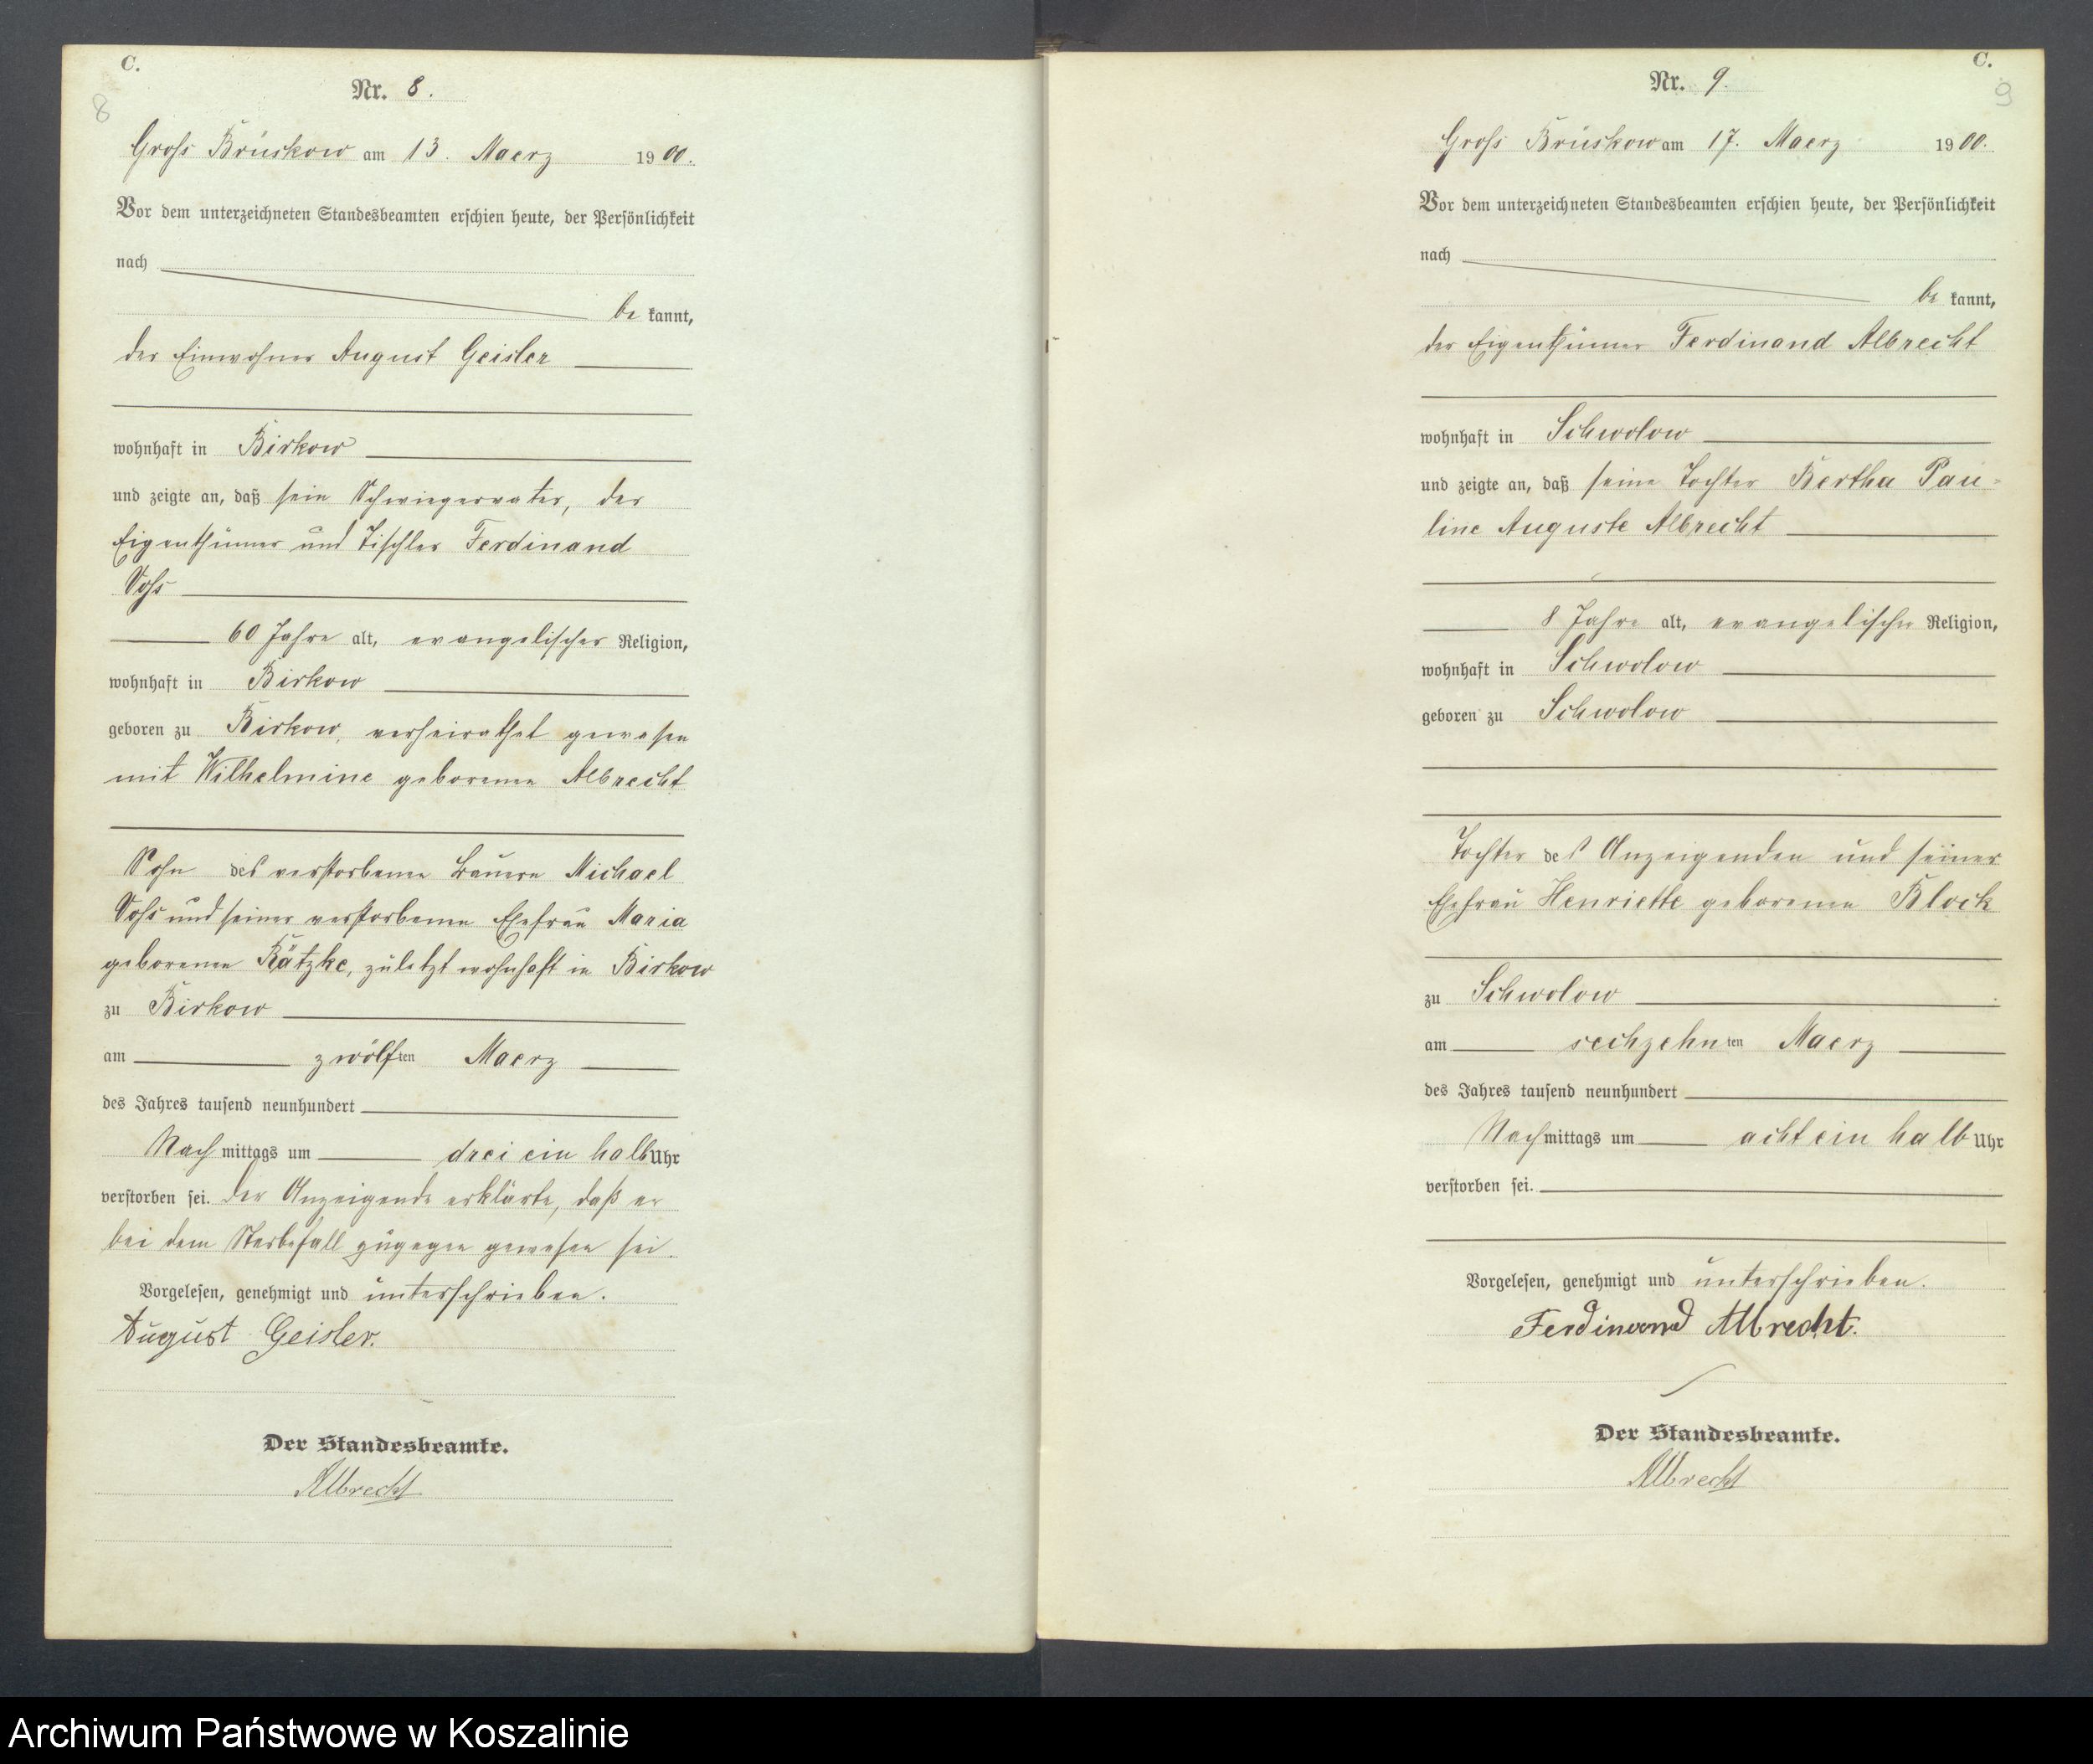 C.
8
Nr. 8.
Gross Brüskow am 13. Maerz 1900.
Vor dem unterzeichneten Standesbeamten erschien heute, der Persönlichkeit
nach
be kannt,
der Einwohner August Geisler
wohnhaft in Birkow
und zeigte an, daß sein Schwiegervater, der
Eigenthümer und Tischler Ferdinand
Voss
60 Jahre alt, evangelischer Religion,
wohnhaft in Birkow
geboren zu Birkow, verheirathet gewesen
mit Wilhelmine geborenen Albrecht
Sohn des verstorbenen Bauern Michael
Voss und seiner verstorbenen Ehefrau Maria
geborenen Rätzke, zuletzt wohnhaft in Birkow
zu Birkow
am zwölften Maerz
des Jahres tausend neunhundert
Nachmittags um drei ein halb Uhr
verstorben sei. Der Anzeigende erklärte, daß er
bei dem Sterbefall zugegen gewesen sei.
Vorgelesen, genehmigt und unterschrieben.
August Geisler.
Der Standesbeamte.
Albrecht
C.
9
Nr. 9.
Gross Brüskow am 17. Maerz 1900.
Vor dem unterzeichneten Standesbeamten erschien heute, der Persönlichkeit
nach
be kannt,
der Eigenthümer Ferdinand Albrecht
wohnhaft in Schwolow
und zeigte an, daß seine Tochter Bertha Pau-
line Auguste Albrecht
8 Jahre alt, evangelischer Religion,
wohnhaft in Schwolow
geboren zu Schwolow
Tochter des Anzeigenden und seiner
Ehefrau Henriette geborenen Block
zu Schwolow
am sechzehnten Maerz
des Jahres tausend neunhundert
Nachmittags um acht ein halb Uhr
verstorben sei.
Vorgelesen, genehmigt und unterschrieben.
Ferdinand Albrecht.
Der Standesbeamte.
Albrecht
Archiwum Państwowe w Koszalinie